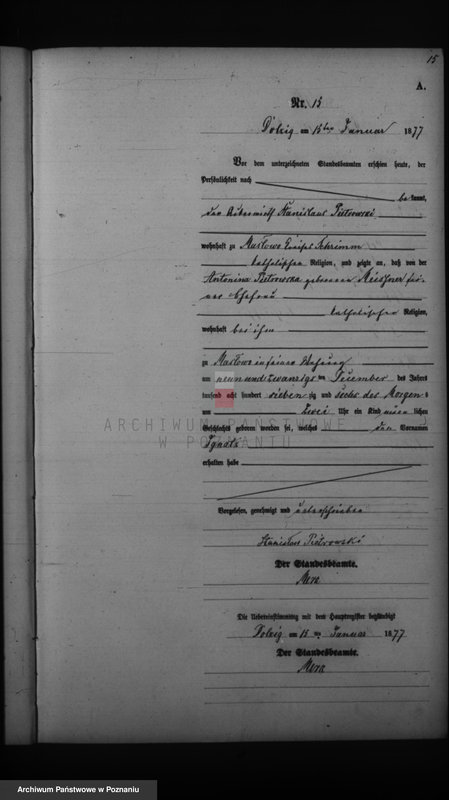 15
A.
Nr. 15
Dolzig am 15ten Januar 1877
Vor dem unterzeichneten Standesbeamten erschien heute, der
Persönlichkeit nach
be kannt,
der Stanislaus Piotrowski
wohnhaft zu Maslowo Kreises Schrimm
katholischen Religion, und zeigte an, daß von der
Antonina Piotrowska geborenen sei-
ner Ehefrau
katholischer Religion,
wohnhaft bei ihm
zu Maslowo in seiner Wohnung
am neun und zwanzigs ten Dezember des Jahres
tausend acht hundert sieben zig und sechs des Morgen s
um zwei Uhr ein Kind männ lichen
Geschlechts geboren worden sei, welches den Vornamen
Ignatz
erhalten habe
Vorgelesen, genehmigt und unterschrieben
Stanisław Piotrowski
Der Standesbeamte.
Die Uebereinstimmung mit dem Hauptregister beglaubigt
Dolzig am 15 ten Januar 1877
Der Standesbeamte.
ARCHIWUM PAŃSTWOWE
W POZNANIU
Archiwum Państwowe w Poznaniu